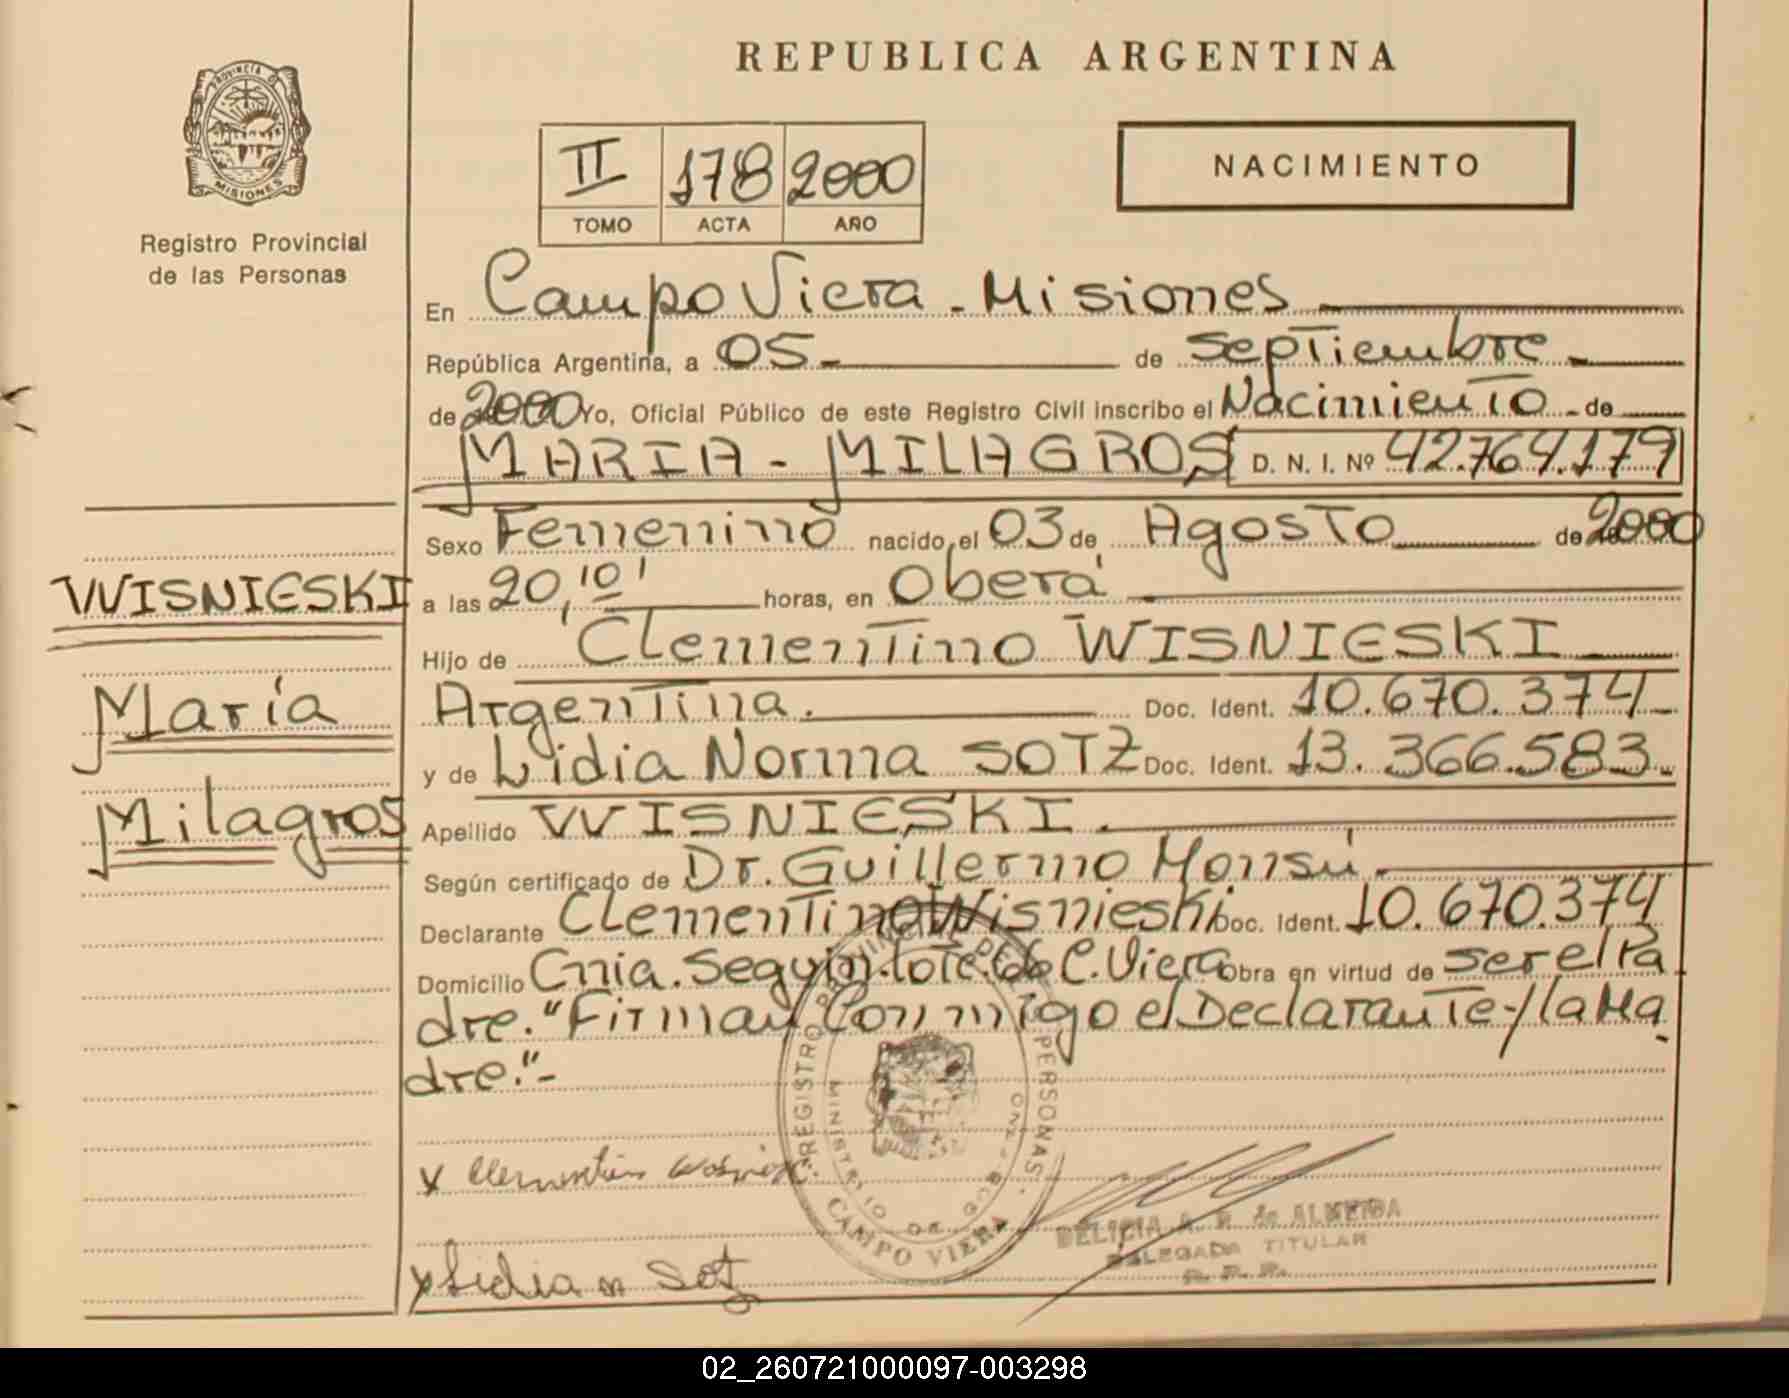 REPUBLICA ARGENTINA
PROVINCIA D
MISIONES
Registro Provincial
de las Personas
II 178 2000
TOMO ACTA AÑO
NACIMIENTO
En Campo Viera - Misiones
República Argentina, a 05 - de septiembre -
de 2000 Yo, Oficial Público de este Registro Civil inscribo el Nacimiento - de
MARIA - MILAGROS D. N. I. Nº 42.764.179
Sexo Femenino nacido el 03 de Agosto de 2000
a las 20,10' horas, en Oberá
Hijo de Clementino WISNIESKI
Argentina. Doc. Ident. 10.670.374 -
y de Lidia Norma SOTZ Doc. Ident. 13.366.583 -
Apellido WISNIESKI.
Según certificado de Dr. Guillermo Monsú.
Declarante Clementino Wisnieski Doc. Ident. 10.670.374
Domicilio Cnia. Seguin. lote. de C. Viera Obra en virtud de ser el Pa
dre. "Firman Conmigo el Declarante-/la Ma
dre."-
WISNIESKI
María
Milagros
REGISTRO PROVINCIAL DE PERSONAS
MINISTRIO DE GOB
CAMPO VIERA
x Clementino
x Lidia n Sotz
DELICIA A. de ALMEIDA
DELEGADA TITULAR
R. P. P.
02_260721000097-003298